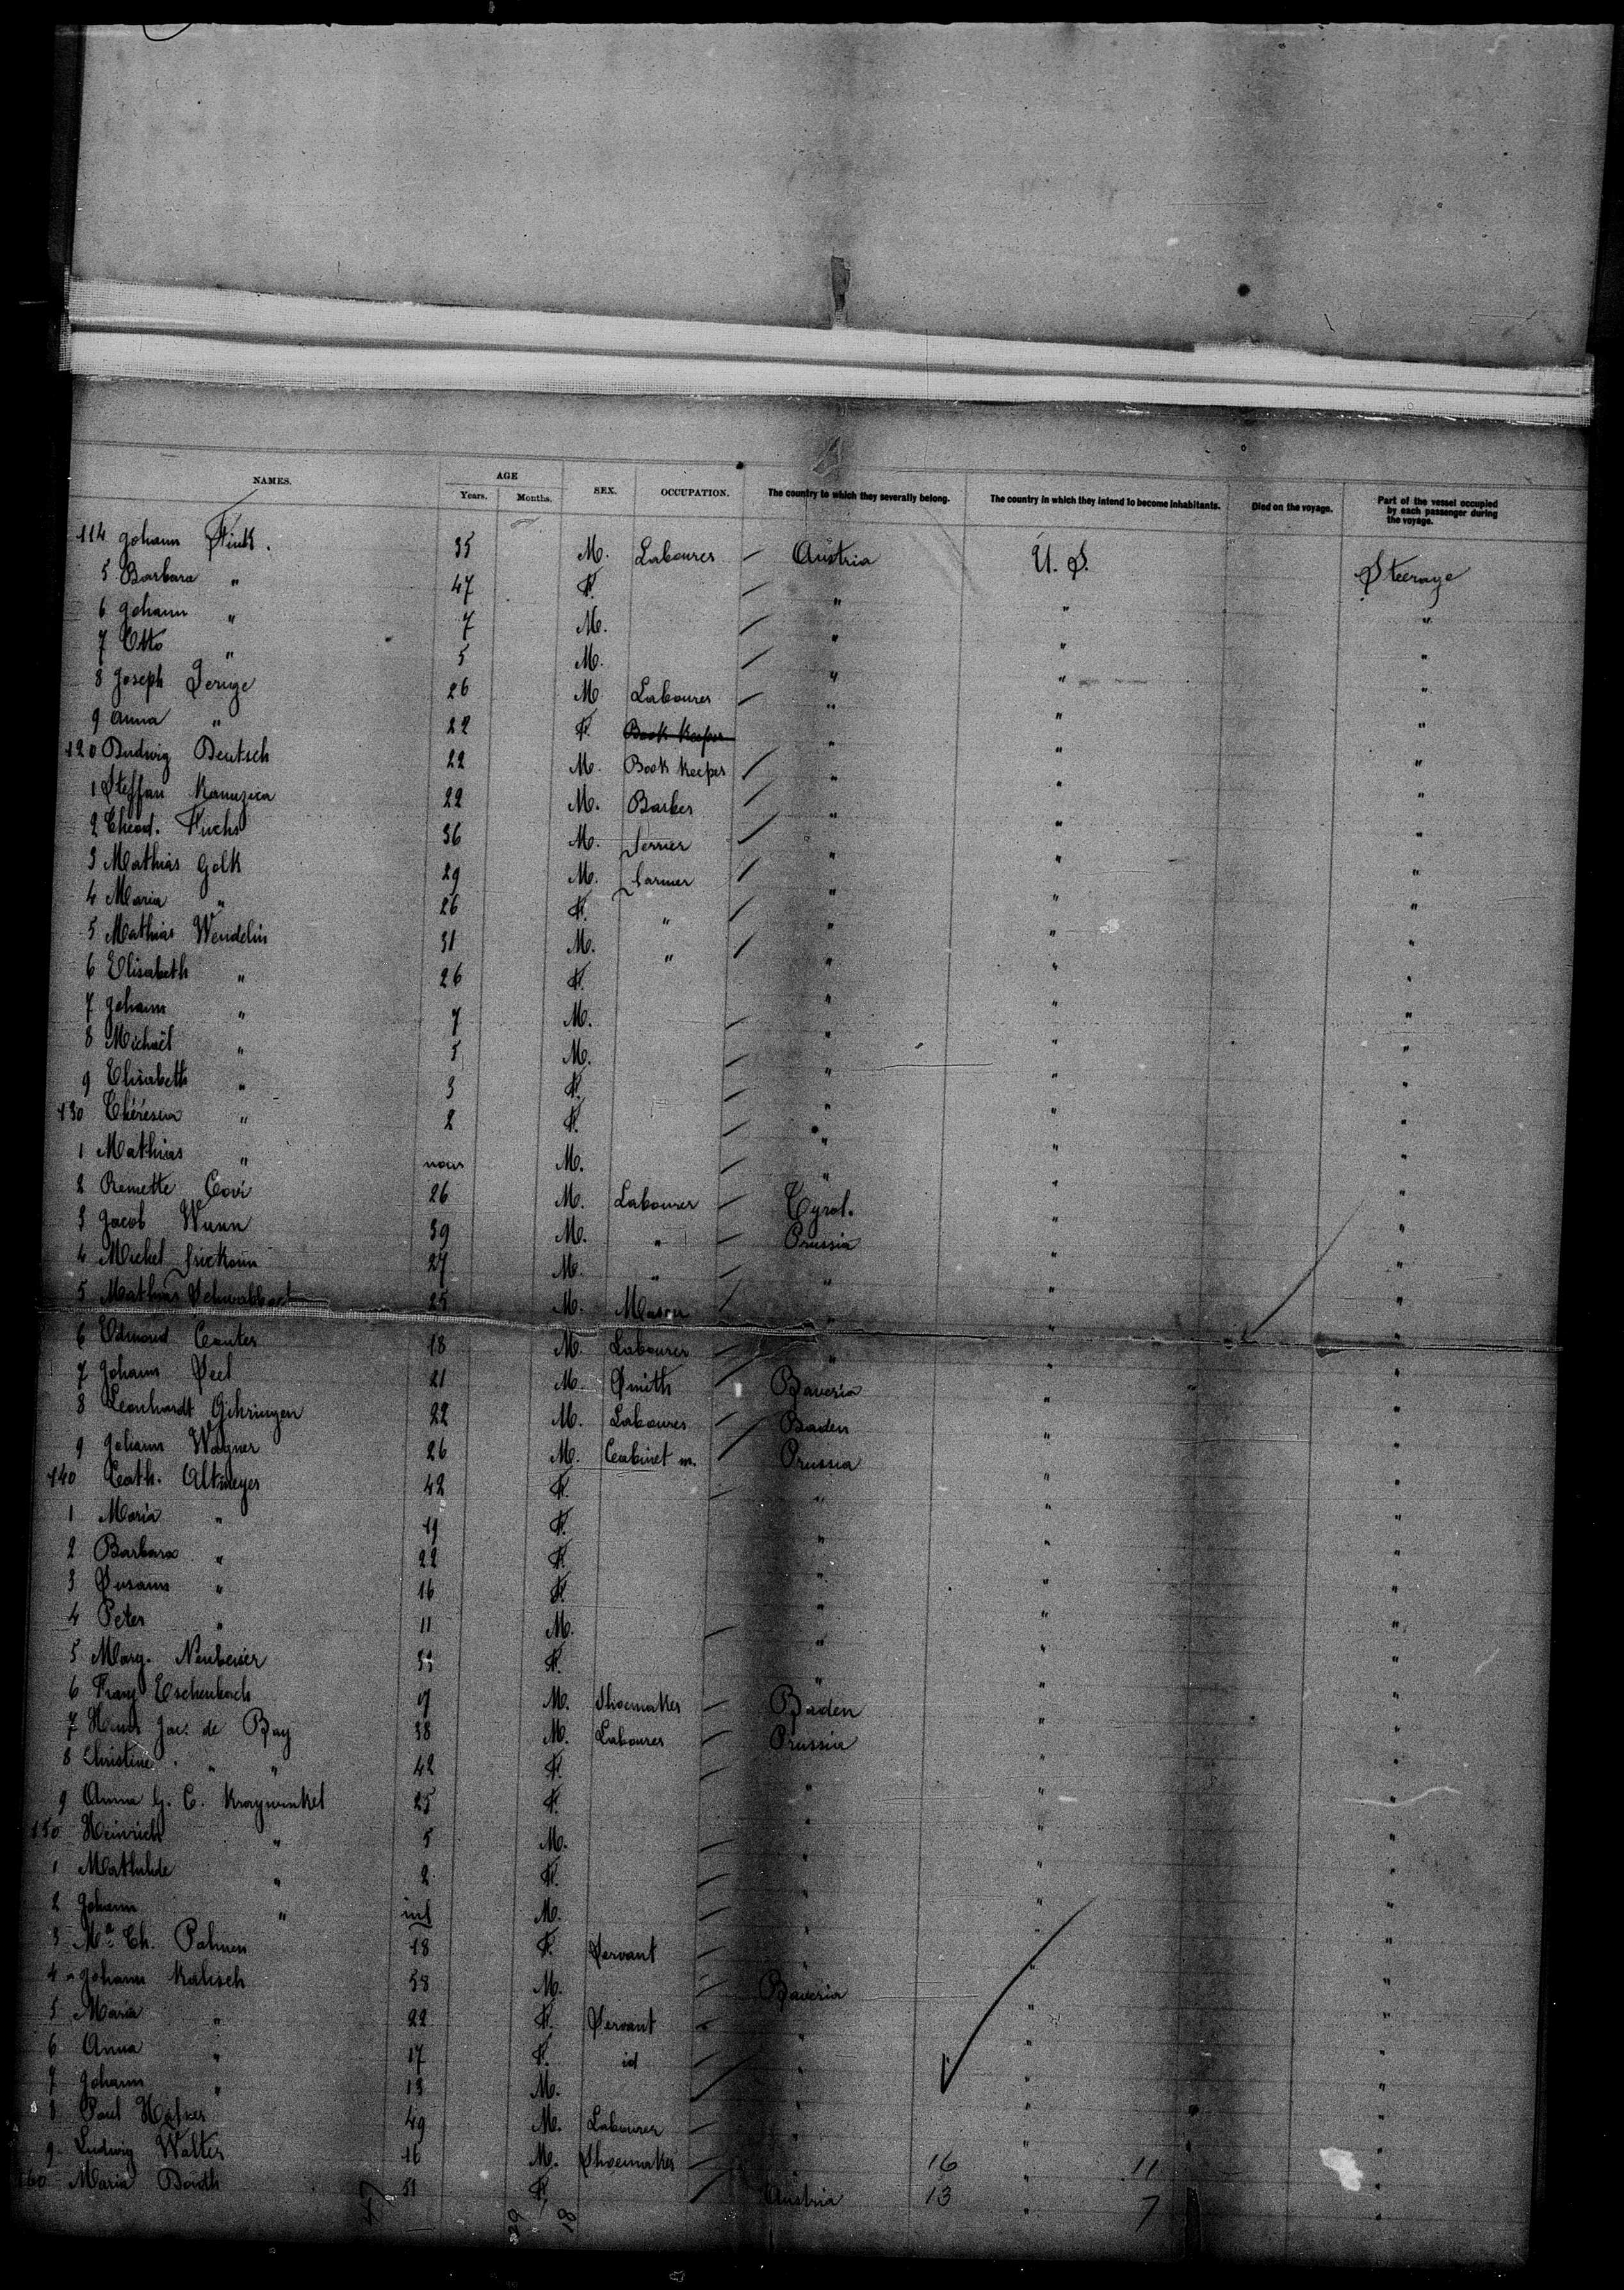 NAMES. AGE Years. Months. SEX. OCCUPATION. The country to which they severally belong. The country in which they intend to become inhabitants. Died on the voyage. Part of the vessel occupied by each passenger during the voyage.
114 Johann Fink. 35 M. Labourer Austria U. S. Steerage
5 Barbara " 47 F. " " "
6 Johann " 7 M. " " "
7 Otto " 5 M. " " "
8 Joseph 26 M Labourer " " "
9 Anna " 22 F. Book Keeper " " "
120 Ludwig Deutsch 22 M. Book Keeper " " "
1 Steffan 22 M. Barber " " "
2 Theod. Fuchs 36 M. " " "
3 Mathias Golk 29 M. Farmer " " "
4 Maria " 26 F. " " " "
5 Mathias Wendelin 31 M. " " " "
6 Elisabeth " 26 F. " " "
7 Johann " 7 M. " " "
8 Michaël " 5 M. " " "
9 Elisabeth " 3 F. " " "
130 Théresia " 2 F. " " "
1 Mathias " M. " " "
2 26 M. Labourer Tyrol. " "
3 Jacob Wunn 39 M. " Prussia " "
4 Michel 27 M. " " " "
5 Mathias 25 M. Mason " " "
6 Edmond 18 M. Labourer " " "
7 Johann Seel 21 M Smith Bavaria " "
8 Leonhardt Gehringer 22 M. Labourer Baden " "
9 Johann Wagner 26 M. Cabinet m. Prussia " "
140 Cath. Altmeyer 42 F. " " "
1 Maria " 19 F. " " "
2 Barbara " 22 F. " " "
3 Susann " 16 F. " " "
4 Peter " 11 M. " " "
5 Marg. Neubeiser F. " " "
6 Franz Eschenbach 17 M. Shoemaker Baden " "
7 Jac. de Bay 38 M. Labourer Prussia " "
8 Christine " " 42 F. " " "
9 Anna G. C. Kraywinkel 25 F. " " "
150 Heinrich " 5 M. " " "
1 Mathilde " 2 F. " " "
2 Johann " inf M. " " "
3 Ma Ch. Palmen 18 F. Servant " " "
4 Johann Kalisch 58 M. Bavaria " "
5 Maria " 22 F. Servant " " "
6 Anna " 17 F. id " " "
7 Johann " 13 M. " " "
8 Paul Hafner 49 M. Labourer " " "
9 Ludwig Walter 16 M. Shoemaker " 16 " 11 "
160 Maria 51 F. Austria 13 " 7 "
47 29 18